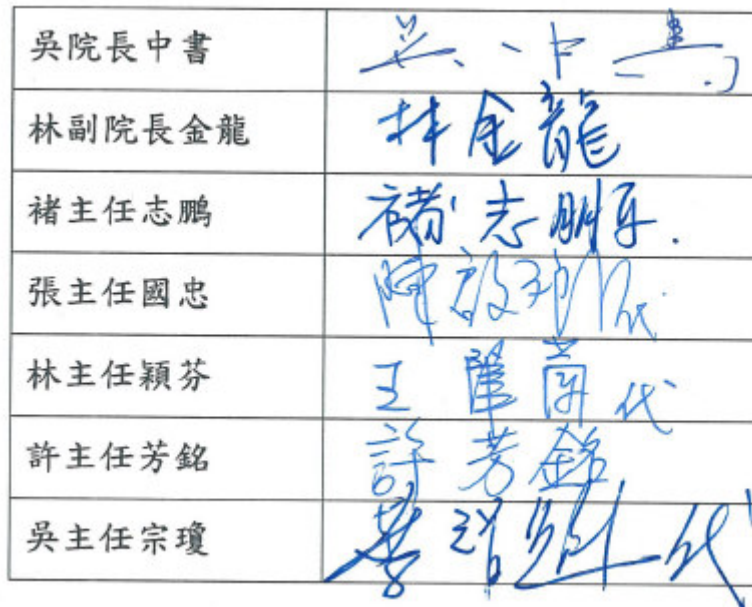 吳院長中書 吳中書
林副院長金龍 林金龍
褚主任志鵬 褚志鵬
張主任國忠 陳 代
林主任穎芬 王 代
許主任芳銘 許芳銘
吳主任宗瓊 代